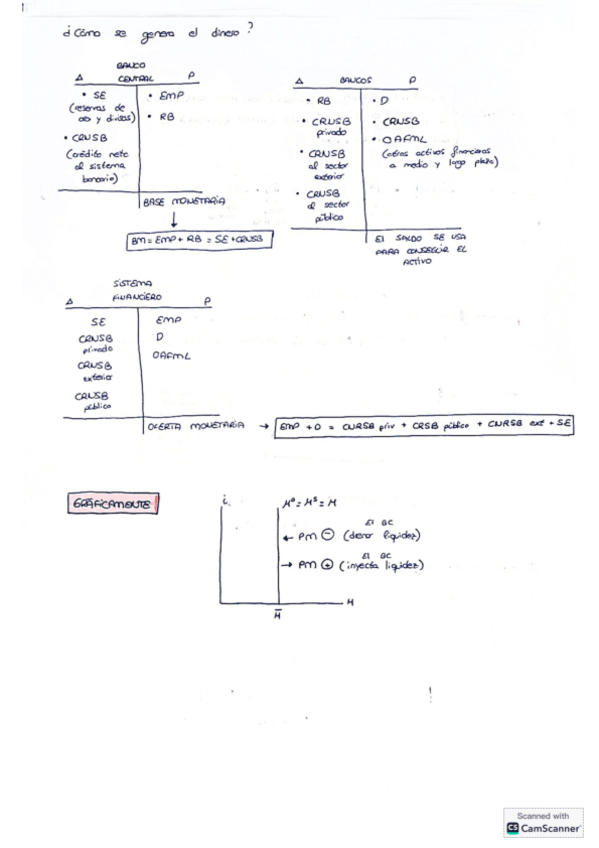 ¿Cómo se genera el dinero?
BANCO
A CENTRAL P
• SE
(reservas de
oro y divisas)
• CRNSB
(crédito neto
al sistema
bancario)
• EMP
• RB
BASE MONETARIA
BM = EMP + RB = SE + CRNSB
A BANCOS P
• RB
• CRNSB
privado
• CRNSB
al sector
exterior
• CRNSB
al sector
público
• D
• CRNSB
• OAFML
(otros activos financieros
a medio y largo plazo)
El SALDO SE USA
PARA CONSEGUIR EL
ACTIVO
SISTEMA
A FINANCIERO P
SE
CRNSB
privado
CRNSB
exterior
CRNSB
público
EMP
D
OAFML
OFERTA MONETARIA → EMP + D = CURSB priv + CRSB público + CURSB ext + SE
GRÁFICAMENTE
i
M⁰ = Mˢ = M
El BC
← PM ⊖ (drenar liquidez)
El BC
→ PM ⊕ (inyecta liquidez)
M
M̅
Scanned with
CS CamScanner